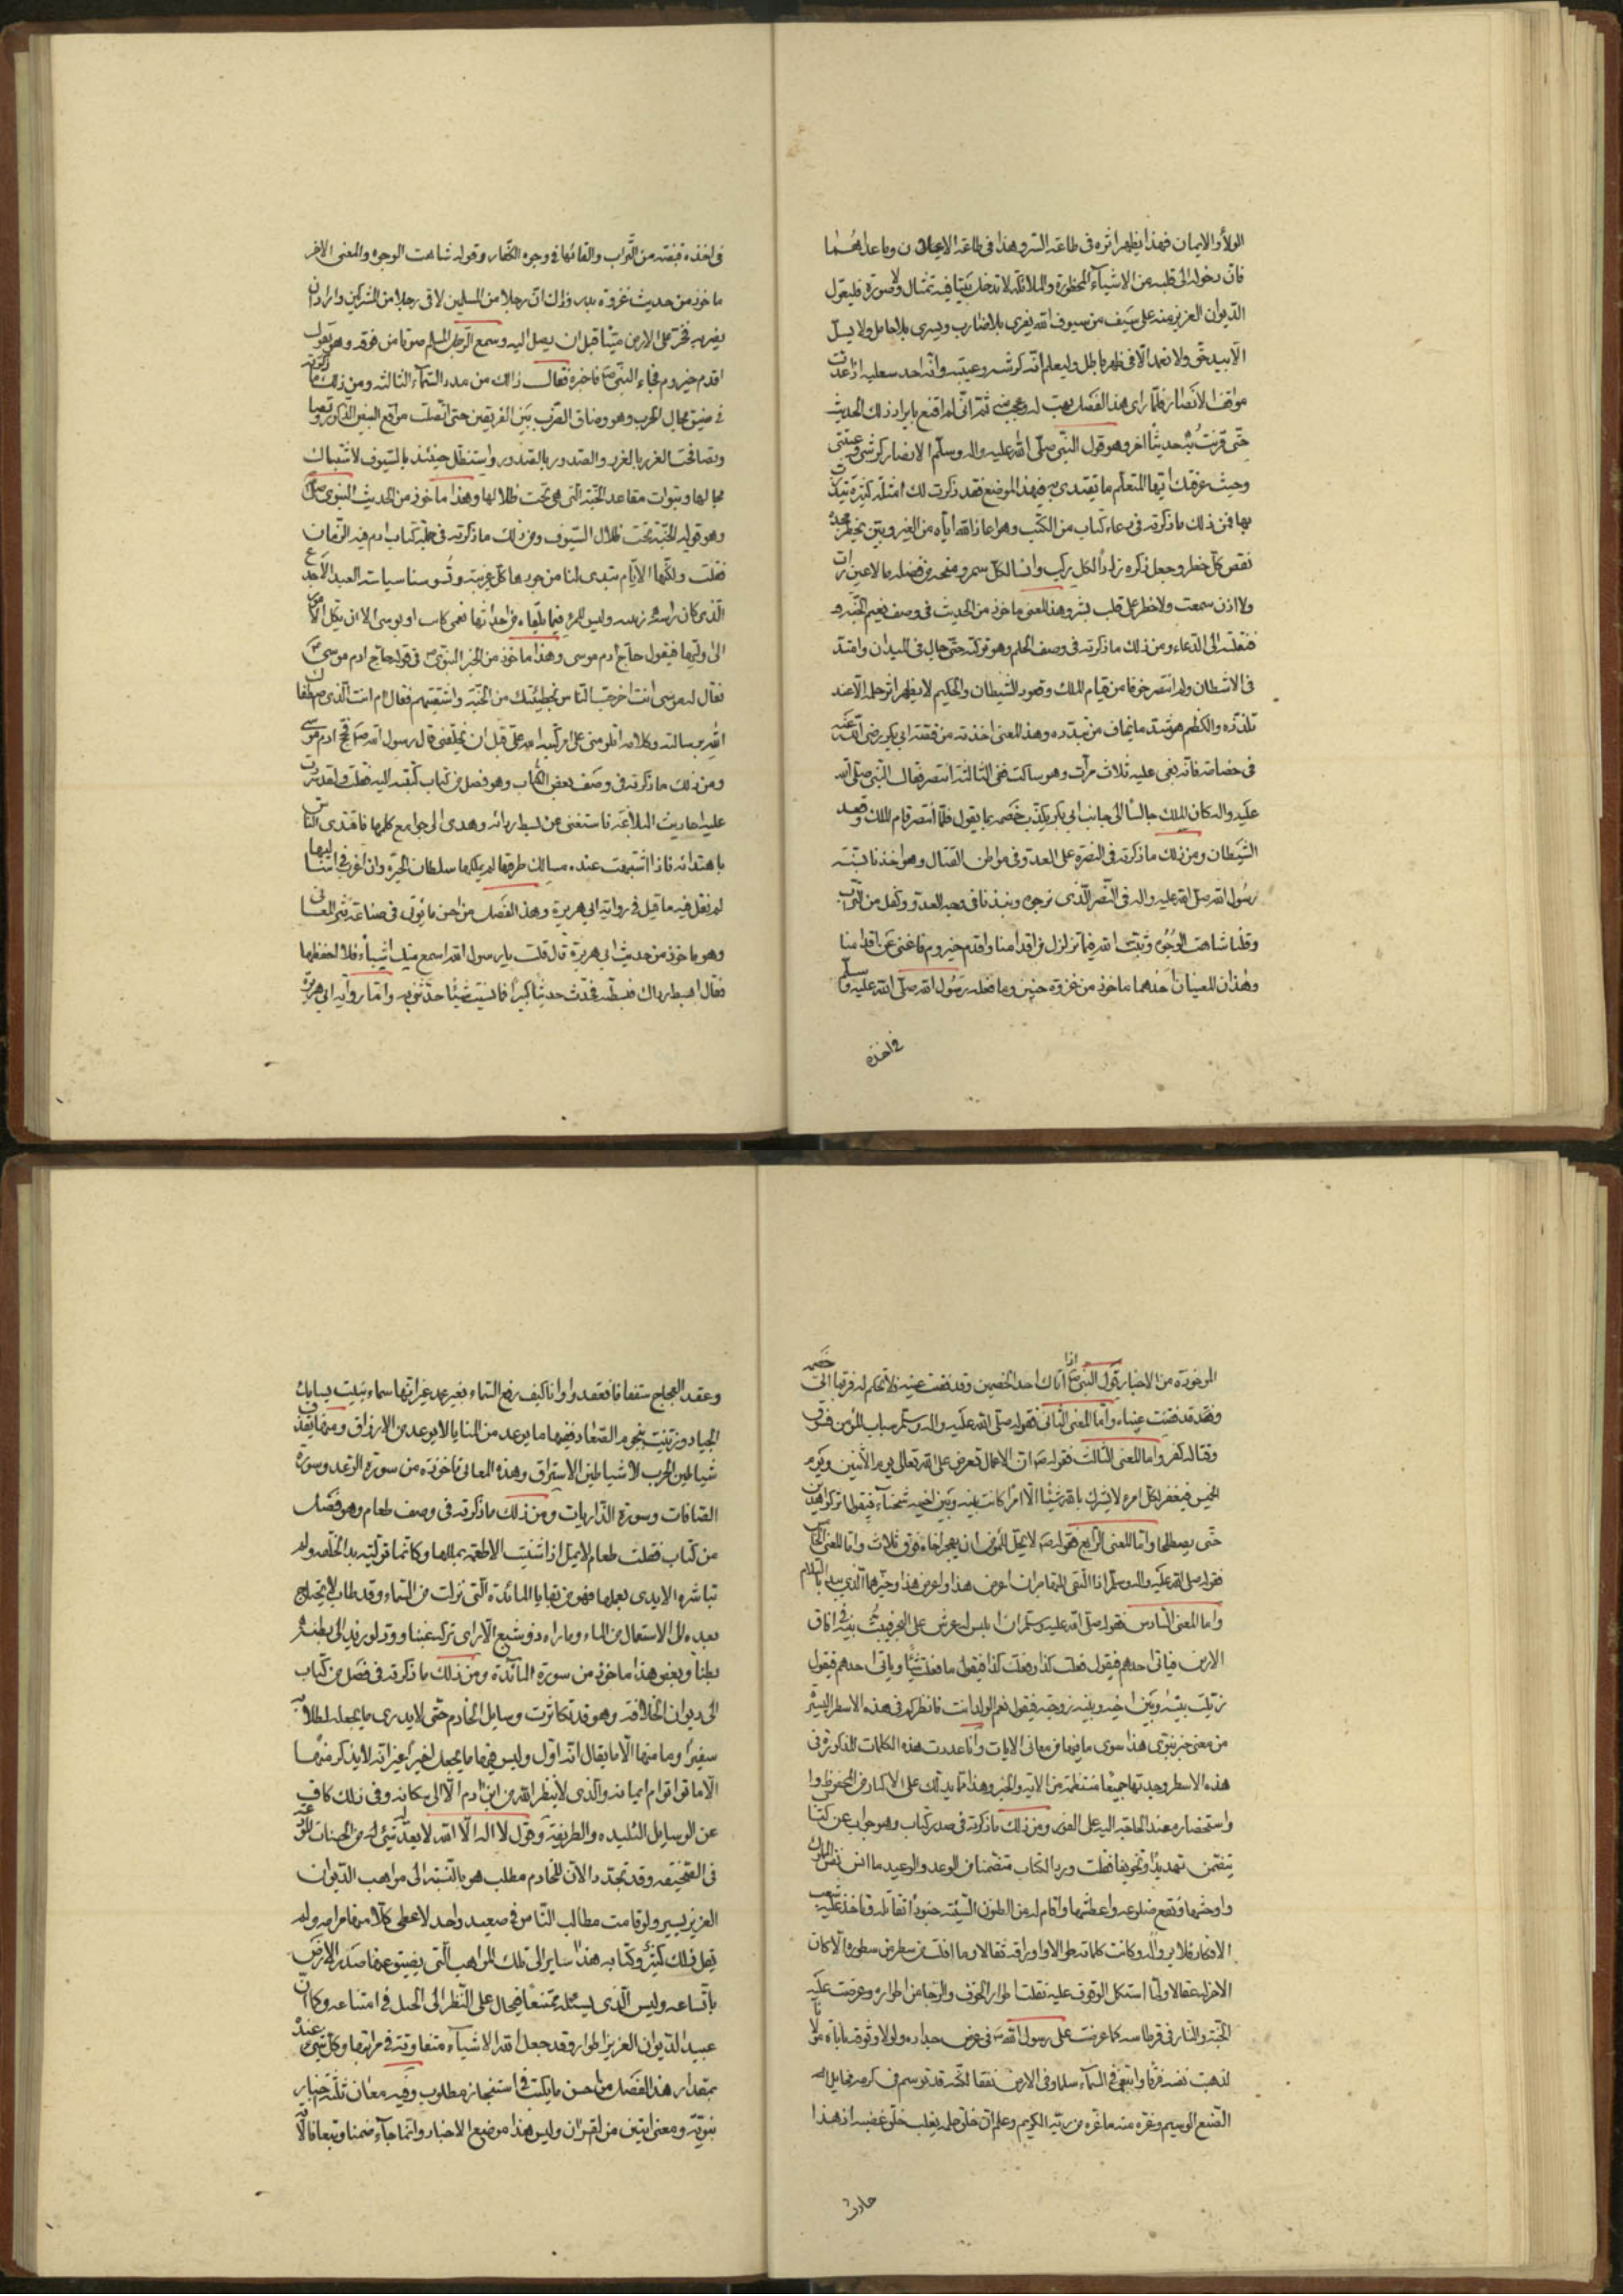 الولآء والايمان فهذا يظهر اثره فى طاعة السر وهذا فى طاعة الاعلان وما عداهما
فان دخوله الى قلبه من الاشيآء المحظورة والملائكة لا تدخل بيتا فيه تمثال ولا صورة فليعول
الديوان العزيز منه على سيف من سيوف الله يفرى بلا ضارب ويسرى بلا حامل ولا يسل
الا بيد حق ولا يغمد الا فى ظهر باطل وليعلم انه كرشه وعيبته وانه احد سعديه اذا عدت
مواقف الانصار فلما راى هذا الفصل بهت له وعجب منه ثم انى لم اقنع بايراد ذلك الحديث
حتى قرنت به حديثا اخر وهو قول النبى صلى الله عليه واله وسلم الانصار كرشى وعيبتى
وحيث عرفتك ايها المتعلم ما تقتدى به فى هذا الموضع فقد ذكرت لك امثلة كثيرة تتدرب
بها فمن ذلك ما ذكرته فى دعاء كتاب من الكتب وهو اعاذ الله ايامه من الغير وبين بخطر مجده
نقص كل خطر وجعل ذكره زادا لكل ركب وانسا لكل سمر ومنحه من فضله ما لا عين رات
ولا اذن سمعت ولا خطر على قلب بشر وهذا المعنى ماخوذ من الحديث فى وصف نعيم الجنة
فنقلته الى الدعاء ومن ذلك ما ذكرته فى وصف الحلم وهو تركته حتى جال فى الميدان وامتد
فى الاشطان ولم انتصر خوفا من قيام الملك وقعود الشيطان والحكيم لا يظهر اثر حلمه الا عند
تلذذه والكظيم هو يشد ما يخاف من تبدده وهذا المعنى اخذته من قصة ابى بكر رضى الله عنه
فى خصامه فانه بغى عليه ثلاث مرات وهو ساكت ففى الثالثة انتصر فقال النبى صلى الله
عليه واله كان الملك جالسا الى جانب ابى بكر يكذب خصمه بما يقول فلما انتصر قام الملك وقعد
الشيطان ومن ذلك ما ذكرته فى النصرة على العدو فى مواطن القتال وهو اخذنا بسنة
رسول الله صلى الله عليه واله فى النصر الذى نرجوه ونبذنا فى وجه العدو وكفا من التراب
وقلنا شاهت الوجوه وثبت الله ما تزلزل من اقدامنا واقدم حيزوم فاغنى عن اقدامنا
وهذان المعنيان احدهما ماخوذ من غزوة حنين وما فعله رسول الله صلى الله عليه وسلم
فى اخذه
فى اخذه قبضة من التراب والقائها فى وجوه الكفار وقوله شاهت الوجوه والمعنى الاخر
ماخوذ من حديث غزوة بدر وذلك ان رجلا من المسلمين لاقى رجلا من المشركين واراد ان
يضربه فخر على الارض ميتا قبل ان يصل اليه وسمع الرجل المسلم صوتا من فوقه وهو يقول
اقدم حيزوم فجاء النبى صلعم فاخبره فقال ذلك من مدد السمآء الثالثة ومن ذلك ما ذكرته
فى ضيق مجال الحرب وهو وضاق الضرب بين الفريقين حتى اتصلت مواقع البيض الذكور
وتصافحت الغرر بالغرر والصدور بالصدور واستظل حينئذ بالسيوف لاشتباك
مجالها وتبوات مقاعد الجنة التى هى تحت ظلالها وهذا ماخوذ من الحديث النبوى صلعم
وهو قوله الجنة تحت ظلال السيوف ومن ذلك ما ذكرته فى خطبة كتاب اذم فيه الزمان
فقلت ولكنها الايام تبدى لنا من جورها كل غريبة وتسوسنا سياسة العبد الاجدع
الذى كان راسه زبيبة وليس للمر فيما يلقاه من احداثها نعمى كان او بوسى الا ان يكل الامر
الى وليها فيقول حاج ادم موسى وهذا ماخوذ من الخبر النبوى فى قوله حاج ادم موسى
فقال له موسى انت اخرجت الناس بخطيئتك من الجنة واشقيتهم فقال ادم انت الذى اصطفاك
الله برسالته وكلامه اتلومنى على امر كتبه الله على قبل ان يخلقنى قال رسول الله صلعم فحج ادم موسى
ومن ذلك ما ذكرته فى وصف بعض الكتاب وهو فصل من كتاب كتبته اليه فقلت ولقد نثرت
عليه احاديث البلاغة فاستغنى عن بسط ردائه وهدى الى جوامع كلمها فاقتدى الناس
باهتدائه فاذا اشتبهت عنده مسالك طرقها لم يملكها سلطان الحيرة وان اغرب فى اساليبها
لم نقل فيه ما قيل فى رواية ابى هريرة وهذا الفصل من احسن ما يؤتى فى صناعة نثر المعانى
وهو ماخوذ من حديث ابى هريرة قال قلت يا رسول الله اسمع منك اشيآء فلا احفظها
فقال ابسط رداك فبسطته فحدث حديثا كثيرا فما نسيت شيئا حدثنى به واما رواية ابى هريرة
الماخوذة من الاخبار قول النبى صلعم اذا اتاك احد الخصمين وقد فقئت عينه فلا تحكم له فربما اتى خصمه
وقد فقئت عيناه واما المعنى الثانى فقوله صلى الله عليه واله وسلم سباب المؤمن فسوق
وقتاله كفر واما المعنى الثالث فقوله صلعم ان الاعمال تعرض على الله تعالى يوم الاثنين ويوم
الخميس فيغفر لكل امرء لا يشرك بالله شيئا الا امرا كانت بينه وبين اخيه شحنآء فيقول اتركوا هذين
حتى يصطلحا واما المعنى الرابع فقوله صلعم لا يحل لمؤمن ان يهجر اخاه فوق ثلاث واما المعنى الخامس
فقوله صلى الله عليه واله وسلم اذا التقى المتهاجران اعرض هذا واعرض هذا وخيرهما الذى يبدا بالسلام
واما المعنى السادس فقوله صلى الله عليه وسلم ان ابليس له عرش على البحر فيبث بنيه فى افاق
الارض فياتى احدهم فيقول فعلت كذا وفعلت كذا فيقول ما فعلت شيئا وياتى احدهم فيقول
زيلت بينه وبين اخيه وبينه زوجته فيقول نعم الولد انت فانظر كم فى هذه الاسطر اليسيرة
من معنى خبر نبوى هذا سوى ما فيها من معانى الايات واذا عددت هذه الكلمات المذكورة فى
هذه الاسطر وجدتها جميعا منتظمة من الاية والخبر وهذا مما يدلك على الاكثار من المحفوظ
واستحضاره عند الحاجة اليه على الفور ومن ذلك ما ذكرته فى صدر كتاب وهو جواب عن كتاب
يتضمن تهديدا وتخويفا فقلت ورد الكتاب متضمنا من الوعد والوعيد ما انس نفس المملوك
واوحشها ونقع ضلوعه واعطشها واقام له من الظنون السيئة جنودا تقاتله وتاخذ عليه شعب
الافكار فلا يروالد وكانت كلماته طوالا واوراقه ثقالا وما افلت من سطر من سطوره الا كان
الاخر له عقالا ولما استكمل الوقوف عليه نقلت اطوار الخوف والرجا من اطواره وعرضت عليه
الجنة والنار فى قرطاسه كما عرضت على رسول الله صلعم فى عرض جداره ولولا وثوقه باناة مولانا
لذهبت نفسه فرقا وابتغى فى السمآء سلما وفى الارض نفقا لكنه قد توسم من كرمه مخايل
الصنع الوسيم وغره منه ما غره من ربه الكريم وعلم ان خلق حلمه يغلب خلق غضبه ان هذا
حادث
وعقد العجاج سقفا فانعقدوا وانا كيف رفع السماء بغير عمد غير انها سماء بنيت بسنابك
الجياد وزينت بنجوم الصعاد ففيها ما يوعد من المنايا لا يوعد من الارزاق ومنها تقذف
شياطين الحرب لا شياطين الاستراق وهذه المعانى ماخوذة من سورة الرعد وسورة
الصافات وسورة الذاريات ومن ذلك ما ذكرته فى وصف طعام وهو فصل
من كتاب فقلت طعام لا يمل اذا شئيت الاطعمة بمللها وكانما تولته يد الخلقة ولم
تباشره الايدى بعملها فهو من بقايا المائدة التى نزلت من السماء وقد طاب لا يحتاج
بعده الى الاستعمال من الماء وما راه ذو شبع الا راى تركه غبنا وود لو زيد الى بطنه
بطنا وبعض هذا ماخوذ من سورة المائدة ومن ذلك ما ذكرته فى فصل من كتاب
الى ديوان الخلافة وهو قد تكاثرت وسايل الخادم حتى لا يدرى ما يجعله لمطلبه
سفيرا وما منها الا ما يقال انه اول وليس فيها ما يجعل اخيرا غير انه لا يذكر منها
الا ما قوا قوام ايمانه والذى لا ينظر الله من ابن ادم الا الى مكانه وفى ذلك كاف
عن الوسايل التليدة والطريفة وقول لا اله الا الله لا يعد بشئ له من الحسنات الموزونة
فى الصحيفة وقد تجدد الان للخادم مطلب هو بالنسبة الى مواهب الديوان
العزيز يسير ولو قامت مطالب الناس فى صعيد واحد لاعطى كلا منها مرامه ولم
يقل ذلك كثير وكتابه هذا ساير الى تلك المواهب التى يضيق عنها صدر الارض
باتساعه وليس الذى يسئله ممتنعا فيحال على النظر الى الجبل فى امتناعه وكما ان
عبيد الديوان العزيز اطوار وقد جعل الله الاشيآء متفاوتة فى مراتبها وكل شئ عنده
بمقدار هذا الفصل من احسن ما يكتب فى استنجاز مطلوب وفيه معان ثلثة اخبار
نبوية ومعنى ايتين من القران وليس هذا موضع الاخبار وانما جآء ضمنا وتبعا فالا